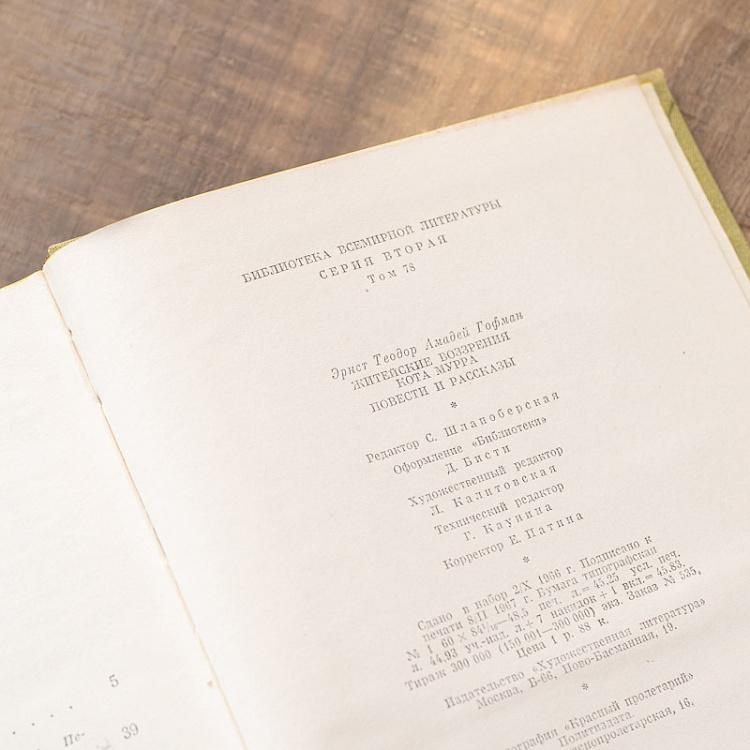 5
Пе-
39
БИБЛИОТЕКА ВСЕМИРНОЙ ЛИТЕРАТУРЫ
СЕРИЯ ВТОРАЯ
Том 78
Эрнст Теодор Амадей Гофман
ЖИТЕЙСКИЕ ВОЗЗРЕНИЯ
КОТА МУРРА
ПОВЕСТИ И РАССКАЗЫ
*
Редактор С. Шлапоберская
Оформление «Библиотеки»
Д. Бисти
Художественный редактор
Л. Калитовская
Технический редактор
Г. Каунина
Корректор Е. Патина
*
Сдано в набор 2/X 1966 г. Подписано к
печати 8/II 1967 г. Бумага типографская
№ 1 60 × 84 1/16—48,5 печ. л.=45,25 усл. печ.
л. 44,93 уч.-изд. л.+ 7 накидок + 1 вкл.= 45,83.
Тираж 300 000 (150 001—300 000) экз. Заказ № 535.
Цена 1 р. 88 к.
Издательство «Художественная литература»
Москва, Б-66, Ново-Басманная, 19.
*
ография «Красный пролетарий»
Политиздата.
снопролетарская, 16.